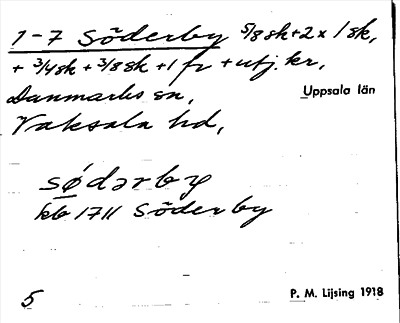 1-7 Söderby 5/8 sk + 2 x 1 sk,
+ 3/4 sk + 3/8 sk + 1 fr + utj. kr,
Danmarks sn,
Uppsala län
Vaksala hd,
sǿdərby
kb 1711 Söderby
5
P. M. Lijsing 1918